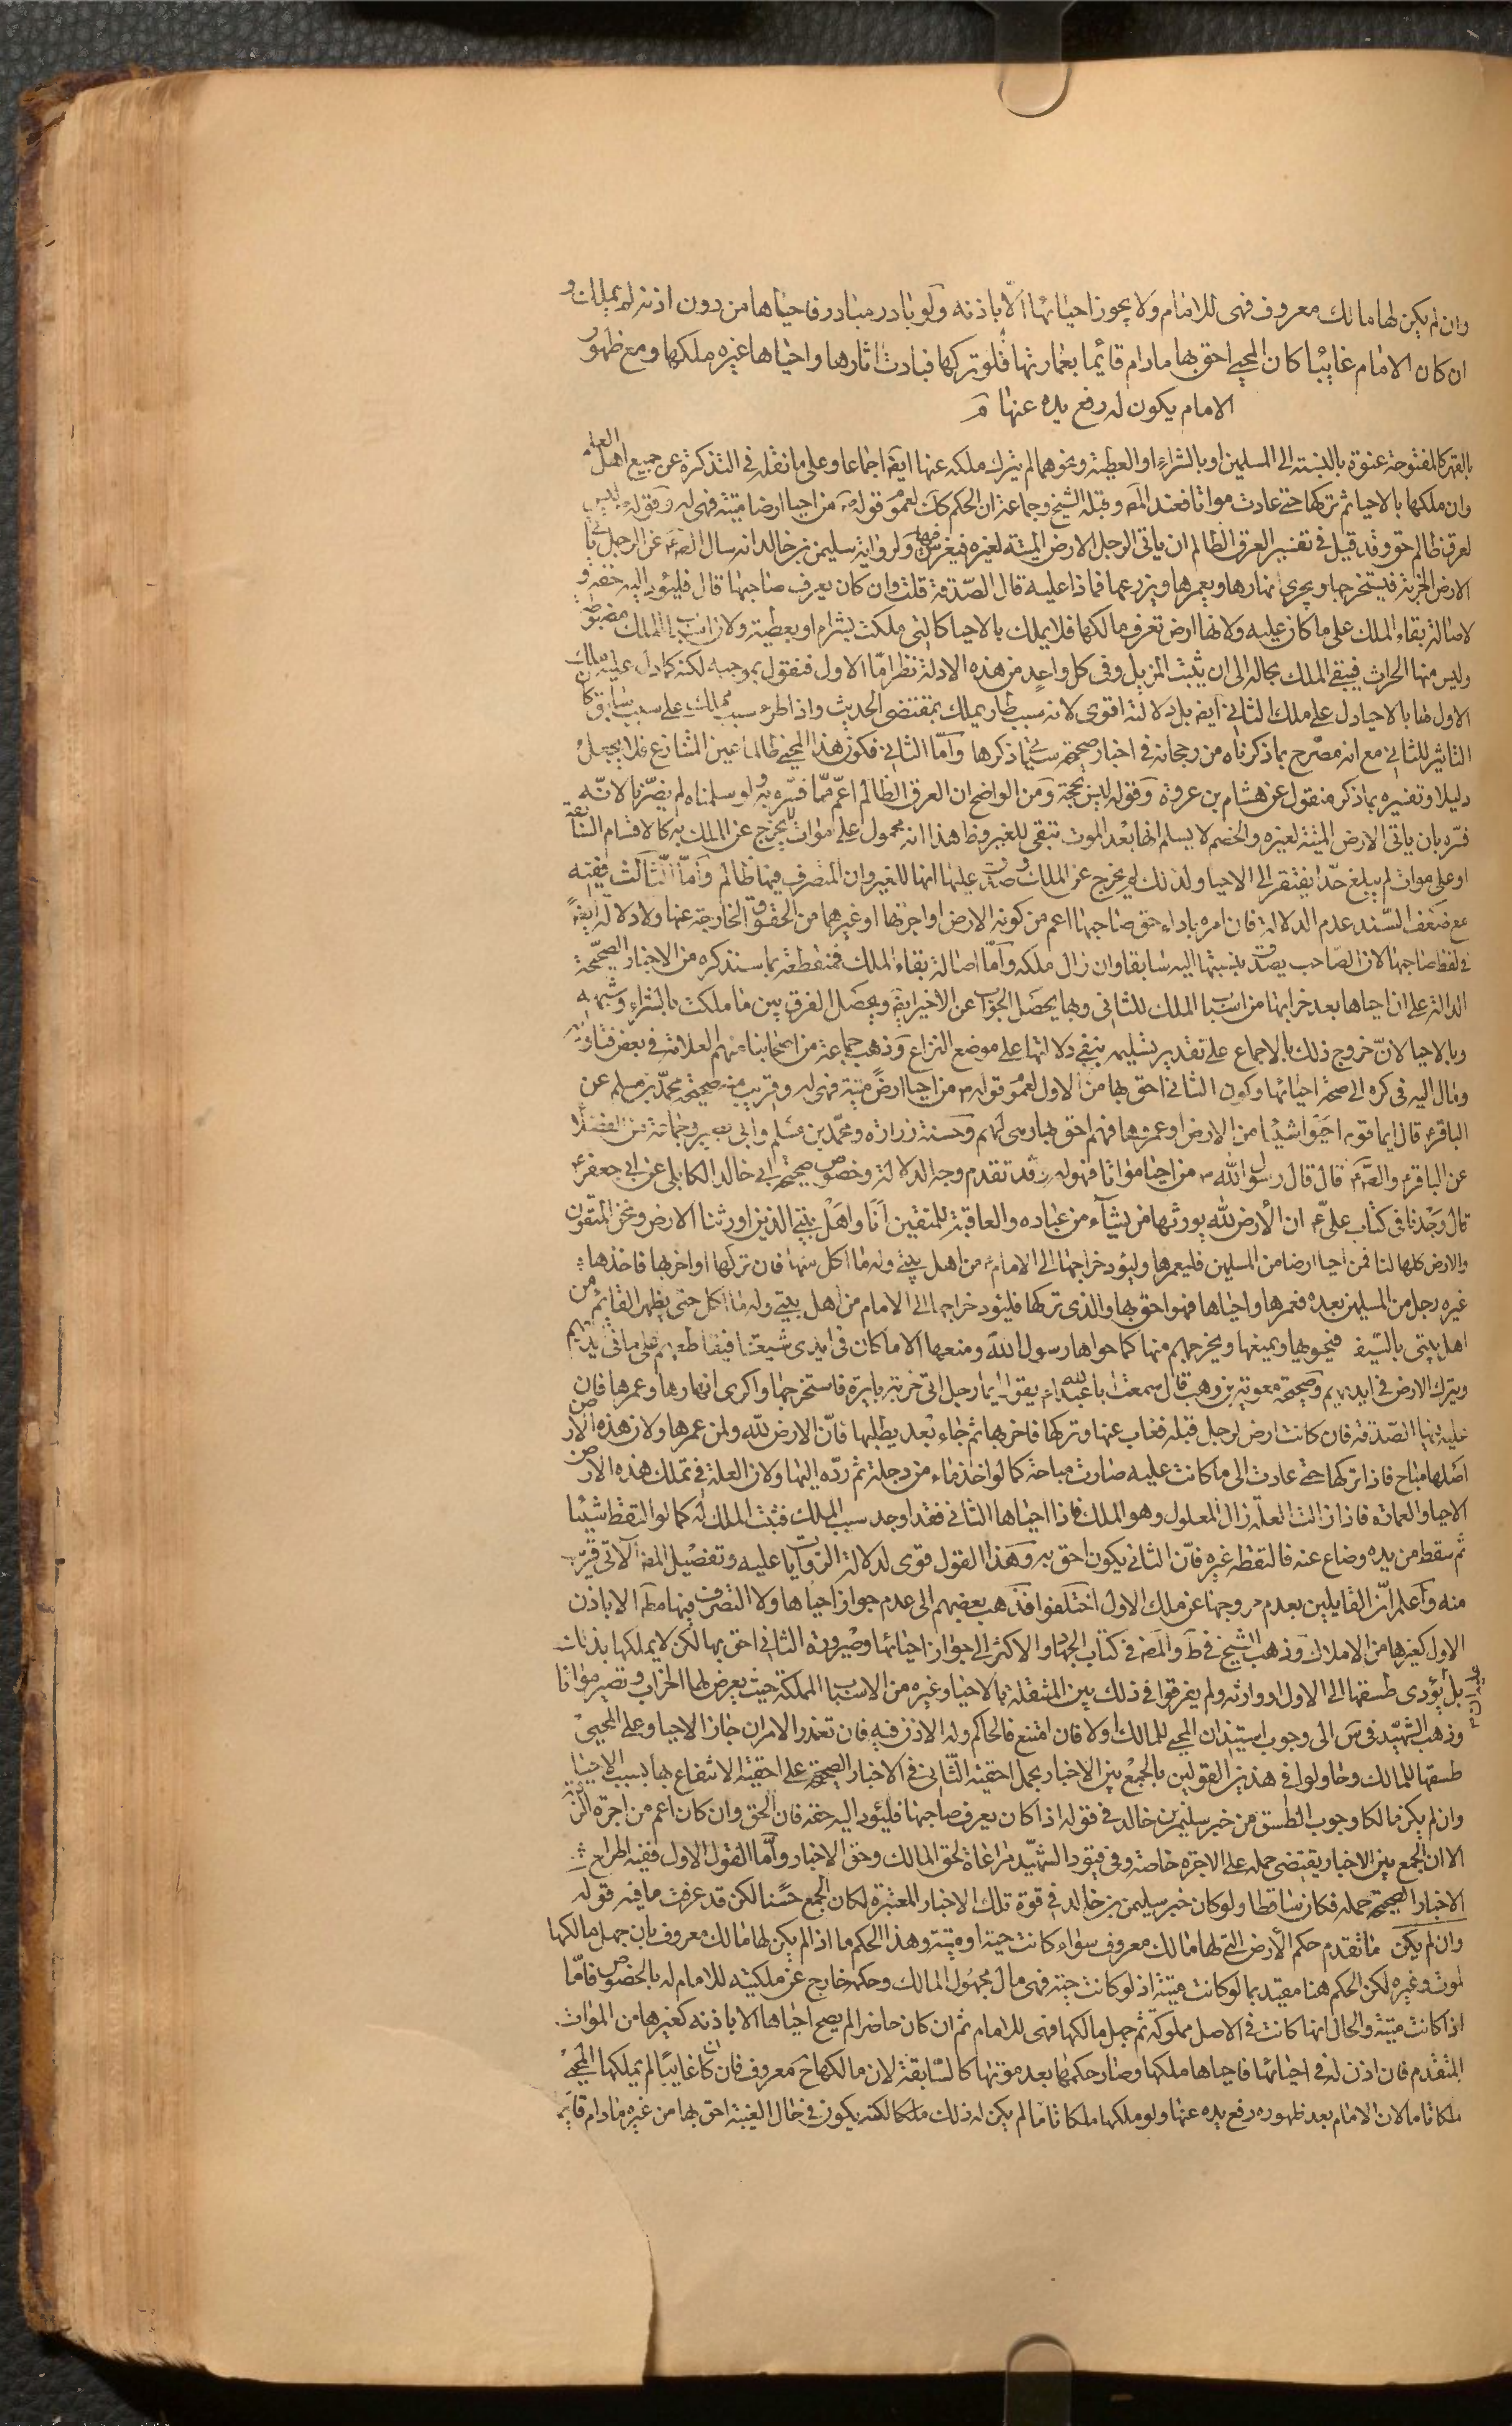 وان لم يكن لها مالك معروف فهى للامام ولا يجوز احيائها الّا باذنه ولو بادر مبادر فاحياها من دون اذنه لم يملك و
ان كان الامام غايبًا كان المحيى احق بها مادام قائيما بعمارتها فلو تركها فبادت اثارها واحياها غيره ملكها ومع ظهور
الامام يكون له رفع يده عنها
بالقهر كالمفتوحة عنوة بالنسبة الى المسلمين او بالشراء او العطية ونحوهما لم يترك ملكه عنها ايضا اجماعا وعلى ما نقله فى التذكرة عن جميع اهل العلم
وان ملكها بالاحيا ثم تركها حتى عادت مواتا فعند المص وقبله الشيخ وجماعة ان الحكم كك لعموم قوله من احيا ارضا ميتة فهى له وقوله ليس
لعرق ظالم حق وقد قيل فى تفسير العرق الظالم ان ياتى الرجل الارض الميتة لغيره فيغرس فيها ولرواية سليمن بن خالد انه سال الصم عن الرجل ياتى
الارض الخربة فيستخرجها ويجرى انهارها ويعمرها ويزرعها فماذا عليه قال الصدقة قلت وان كان يعرف صاحبها قال فليؤد اليه حقه و
لاصالة بقاء الملك على ما كان عليه ولانها ارض تعرف مالكها فلا يملك بالاحيا كالتى ملكت بشراء او بعطية ولان اسباب الملك مضبوطة
وليس منها الخراب فيبقى الملك بحاله الى ان يثبت المزيل وفى كل واحد من هذه الادلة نظر امّا الاول فنقول بموجبه لكنه كما دل على ملك
الاول لها بالاحيا دل على ملك الثانى ايضا بل دلالته اقوى لانه سبب طار يملك بمقتضى الحديث واذا طرء سبب مملك على سبب سابق كان
التاثير للثانى مع انه مصرح بما ذكرناه من رجحانه فى اخبار صحيحة سياتى ذكرها وامّا الثانى فكون هذا المحيى ظالما عين المتنازع فلا يجعل
دليلا وتفسيره بما ذكر منقول عن هشام بن عروة وقوله ليس بحجة ومن الواضح ان العرق الظالم اعم ممّا فسّره به ولو سلمناه لم يضرّنا لانّه
فسّره بان ياتى الارض الميتة لغيره والخصم لا يسلم انها بعد الموت تبقى للغير وظا هذا انه محمول على موات لا يخرج عن الملك به كالاقسام السابقة
او على موات لم يبلغ حدّا يفتقر الى الاحيا ولذلك لم يخرج عن الملك وصدق عليها انها للغير وان المتصرف فيها ظالم وامّا الثالث ففيه
مع ضعف السّند عدم الدلالة فان امره باداء حق صاحبها اعم من كونه الارض او اجرتها او غيرهما من الحقوق الخارجة عنها ولا دلالة ايضا
فى لفظ صاحبها لان الصّاحب يصدق بنسبتها اليه سابقا وان زال ملكه وامّا اصالة بقاء الملك فمنقطعة بما سنذكره من الاخبار الصحيحة
الدالة على ان احياها بعد خرابها من اسباب الملك للثانى وبها يحصل الجواب عن الاخير ايضا ويحصل الفرق بين ما ملكت بالشراء وشبهه
وبالاحيا لانّ خروج ذلك بالاجماع على تقدير تسليمه ينفى دلالتها على موضع النزاع وذهب جماعة من اصحابنا منهم العلامة فى بعض فتاويه
ومال اليه فى كره الى صحة احيائها وكون الثانى احق بها من الاول لعموم قوله من احيا ارضًا ميتة فهى له وقريب منه صحيحة محمّد بن مسلم عن
الباقر قال ايما قوم احيوا شيئا من الارض او عمروها فهم احق بها وهى لهم وحسنة زرارة ومحمّد بن مسلم وابى بصير وجماعة من الفضلا
عن الباقر والصم قال قال رسول الله من احيا مواتا فهو له قد تقدم وجه الدلالة وخصوص صحيحة ابى خالد الكابلى عن ابى جعفر
قال وجدنا فى كتاب على ان الارض لله يورثها من يشآء من عباده والعاقبة للمتقين انا واهل بيتى الذين اورثنا الارض ونحن المتقون
والارض كلها لنا فمن احيا ارضا من المسلمين فليعمرها وليؤد خراجها الى الامام من اهل بيتى وله ما اكل منها فان تركها او اخربها فاخذها
غيره رجل من المسلمين بعده فعمرها واحياها فهو احق بها والذى تركها فليؤد خراجها الى الامام من اهل بيتى وله ما اكل حتى يظهر القايم من
اهل بيتى بالسّيف فيحويها ويمنعها ويخرجهم منها كما حواها رسول الله ومنعها الا ما كان فى ايدى شيعتنا فيقاطعهم على ما فى ايديهم
ويترك الارض فى ايديهم وصحيحة معوية بن وهب قال سمعت ابا عبد الله يقول ايما رجل اتى خربة بايرة فاستخرجها واكرى انهارها وعمرها فان
عليه فيها الصّدقة فان كانت ارض لرجل قبله فغاب عنها وتركها فاخربها ثم جاء بعد يطلبها فانّ الارض لله ولمن عمرها ولان هذه الارض
اصلها مباح فاذا تركها حتى عادت الى ما كانت عليه صارت مباحة كما لو اخذ ماء من دجلة ثم ردّه اليها ولان العلة فى تملك هذه الارض
الاحيا والعمارة فاذا زالت العلّة زال المعلول وهو الملك فاذا احياها الثانى فقد اوجد سبب الملك فثبت الملك له كما لو التقط شيئا
ثم سقط من يده وضاع عنه فالتقطه غيره فانّ الثانى يكون احق به وهذا القول قوى لدلالة الروايات عليه وتفصيل المص الاتى قريب
منه واعلم انّ القايلين بعدم خروجها عن ملك الاول اختلفوا فذهب بعضهم الى عدم جواز احياها ولا التصرف فيها مط الا باذن
الاول كغيرها من الاملاك وذهب الشيخ فى ط والمص فى كتاب الجهاد والاكثر الى جواز احيائها وصيرورة الثانى احق بها لكن لا يملكها بذلك
بل يؤدى طسقها الى الاول او وارثه ولم يفرقوا فى ذلك بين المنتقلة بالاحيا وغيره من الاسباب المملكة حيث يعرض لها الخراب وتصير مواتا
وذهب الشهيد فى س الى وجوب استيذان المحيى للمالك اولا فان امتنع فالحاكم وله الاذن فيه فان تعذر الامران جاز الاحيا وعلى المحيى
طسقها للمالك وحاولوا فى هذين القولين بالجمع بين الاخبار بحمل احقية الثانى فى الاخبار الصحيحة على احقية الانتفاع بها بسبب الاحيا
وان لم يكن مالكا ووجوب الطسق من خبر سليمن بن خالد فى قوله اذا كان يعرف صاحبها فليئود اليه حقه فان الحق وان كان اعم من اجرة
الا ان الجمع بين الاخبار يقتضى حمله على الاجرة خاصة وفى قيود الشهيد مراعاة لحق المالك وحق الاخبار وامّا القول الاول ففيه اطراح
الاخبار الصحيحة جملة فكان ساقطا ولو كان خبر سليمن بن خالد فى قوة تلك الاخبار المعتبرة لكان الجمع حسنا لكن قد عرفت ما فيه قوله
وان لم يكن ما تقدم حكم الارض التى لها مالك معروف سواء كانت حية او ميتة وهذا الحكم ما اذا لم يكن لها مالك معروف بان جهل مالكها
لموت وغيره لكن الحكم هنا مقيد بما لو كانت ميتة اذ لو كانت حية فهى مال مجهول المالك وحكمه خارج عن ملكيته للامام له بالخصوص فامّا
اذا كانت ميتة والحال انها كانت فى الاصل مملوكة ثم جهل مالكها فهى للامام ثم ان كان حاضرا لم يصح احياها الا باذنه كغيرها من الموات
المتقدم فان اذن له فى احيائها فاحياها ملكها وصار حكمها بعد موتها كالسّابقة لان مالكها ح معروف فان كان غايبًا لم يملكها المحيى
ملكا تاما لان الامام بعد ظهوره رفع يده عنها ولو ملكها ملكا تاما لم يكن له ذلك ملكا لكنه يكون فى حال الغيبة احق بها من غيره مادام قايما